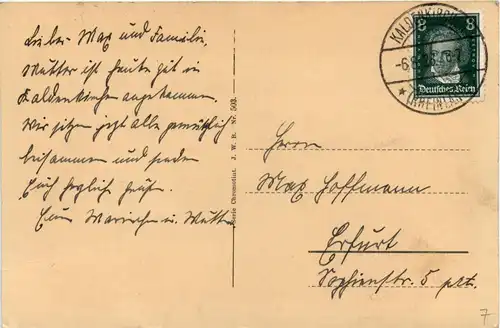 Lieber Max und Familie,
Mutter ist heute gut in
Kaldenkirchen angekommen.
Wir sitzen jetzt alle gemütlich
beisammen und senden
Euch herzliche Grüße.
Eure Mariechen u. Mutter
Serie Chromotint. J. W. B. Nr. 503.
KALDENKIRCHEN
(RHEINLAND)
8 8
Deutsches Reich
Herrn
Max Hoffmann
Erfurt
Sophienstr. 5 ptr.
7